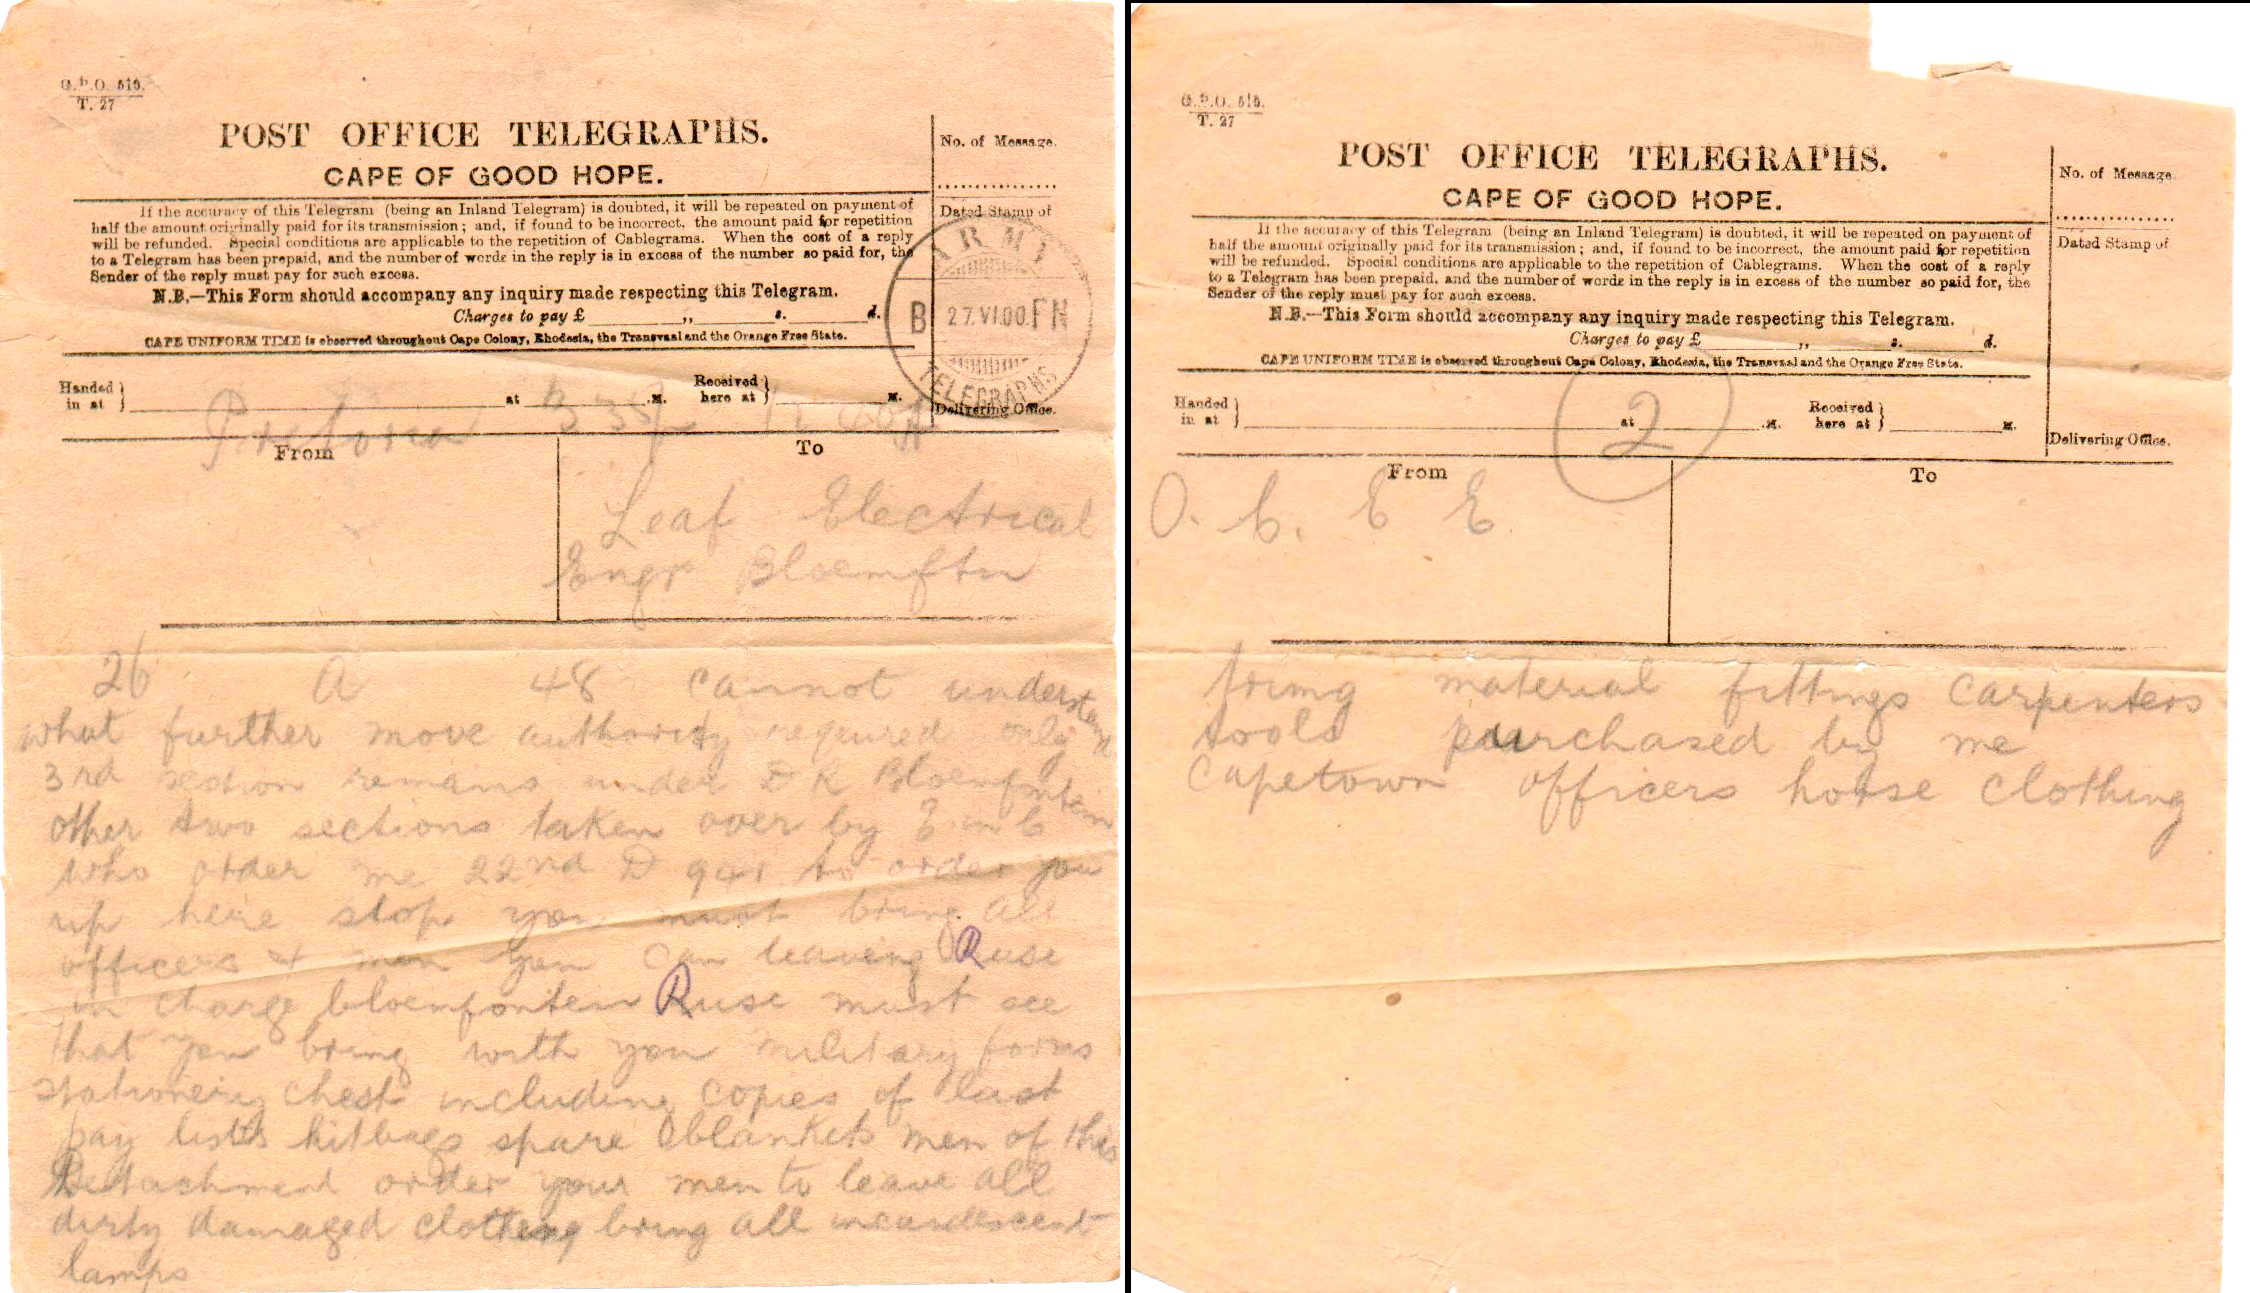 G.P.O. 515.
T. 27
POST OFFICE TELEGRAPHS.
CAPE OF GOOD HOPE.
No. of Message.
If the accuracy of this Telegram (being an Inland Telegram) is doubted, it will be repeated on payment of
half the amount originally paid for its transmission; and, if found to be incorrect, the amount paid for repetition
will be refunded. Special conditions are applicable to the repetition of Cablegrams. When the cost of a reply
to a Telegram has been prepaid, and the number of words in the reply is in excess of the number so paid for, the
Sender of the reply must pay for such excess.
N.B.—This Form should accompany any inquiry made respecting this Telegram.
Charges to pay £ ,, s. d.
CAPE UNIFORM TIME is observed throughout Cape Colony, Rhodesia, the Transvaal and the Orange Free State.
Dated Stamp of
ARMY
B 27.VI.00 FN
TELEGRAPHS
Delivering Office.
Handed in at } Pretoria at M. Received here at } M.
From To
Leaf Electrical
Engr Bloemftn
26 A 48 cannot understand
what further move authority required only
3rd section remains under D R Bloemfontein
other two sections taken over by E in C
who order me 22nd D 941 to order you
up here stop you must bring all
officers & men you can leaving Ruse
in charge bloemfontein Ruse must see
that you bring with you military forms
stationery chest including copies of last
pay lists kitbags spare blankets men of this
Detachment order your men to leave all
dirty damaged clothing bring all incandescent
lamps
G.P.O. 515.
T. 27
POST OFFICE TELEGRAPHS.
CAPE OF GOOD HOPE.
No. of Message.
If the accuracy of this Telegram (being an Inland Telegram) is doubted, it will be repeated on payment of
half the amount originally paid for its transmission; and, if found to be incorrect, the amount paid for repetition
will be refunded. Special conditions are applicable to the repetition of Cablegrams. When the cost of a reply
to a Telegram has been prepaid, and the number of words in the reply is in excess of the number so paid for, the
Sender of the reply must pay for such excess.
N.B.—This Form should accompany any inquiry made respecting this Telegram.
Charges to pay £ ,, s. d.
CAPE UNIFORM TIME is observed throughout Cape Colony, Rhodesia, the Transvaal and the Orange Free State.
Dated Stamp of
Delivering Office.
Handed in at } at M. Received here at } M.
2
From To
O. C. E E.
material fittings carpenters
tools purchased by me
Capetown officers horse clothing